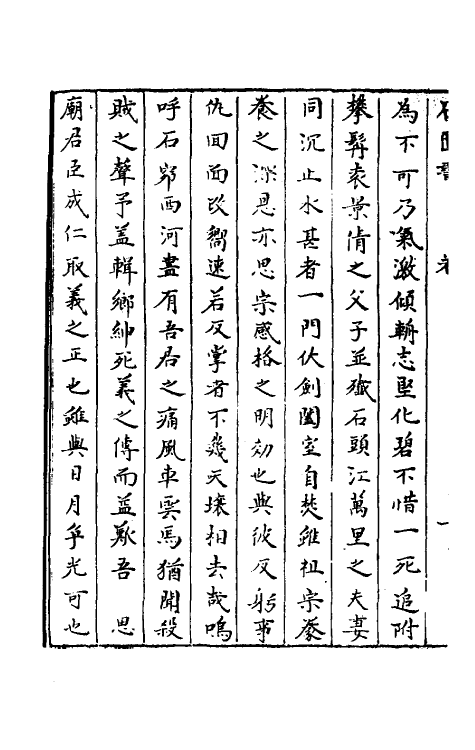 石匱書　　卷
為不可乃氣激傾輈志堅化碧不惜一死追附
攀髯袁景倩之父子並殱石頭江萬里之夫妻
同沉止水甚者一門伏劍闔室自焚雖祖宗豢
養之深恩亦思宗感格之明効也與彼反躬事
仇面面改嚮速若反掌者不幾天壤相去哉嗚
呼石郭西河盡有吾君之痛風車雲馬猶聞殺
賊之聲予盖輯鄉紳死義之傳而益歎吾　思
廟君臣成仁取義之正也雖與日月爭光可也